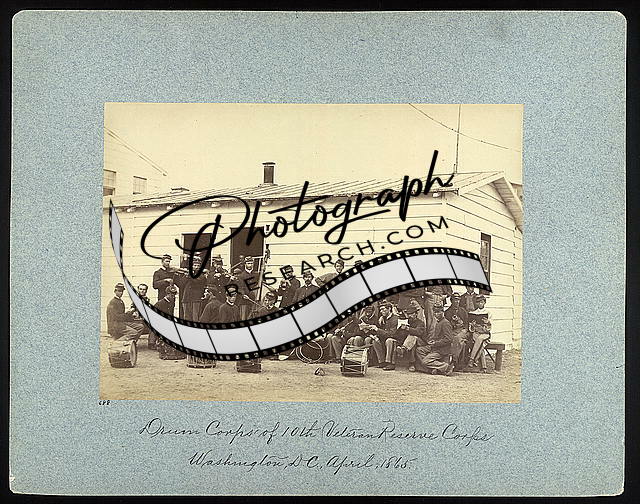 Photograph
RESEARCH.COM
688
Drum Corps of 10th Veteran Reserve Corps
Washington, D.C., April, 1865.